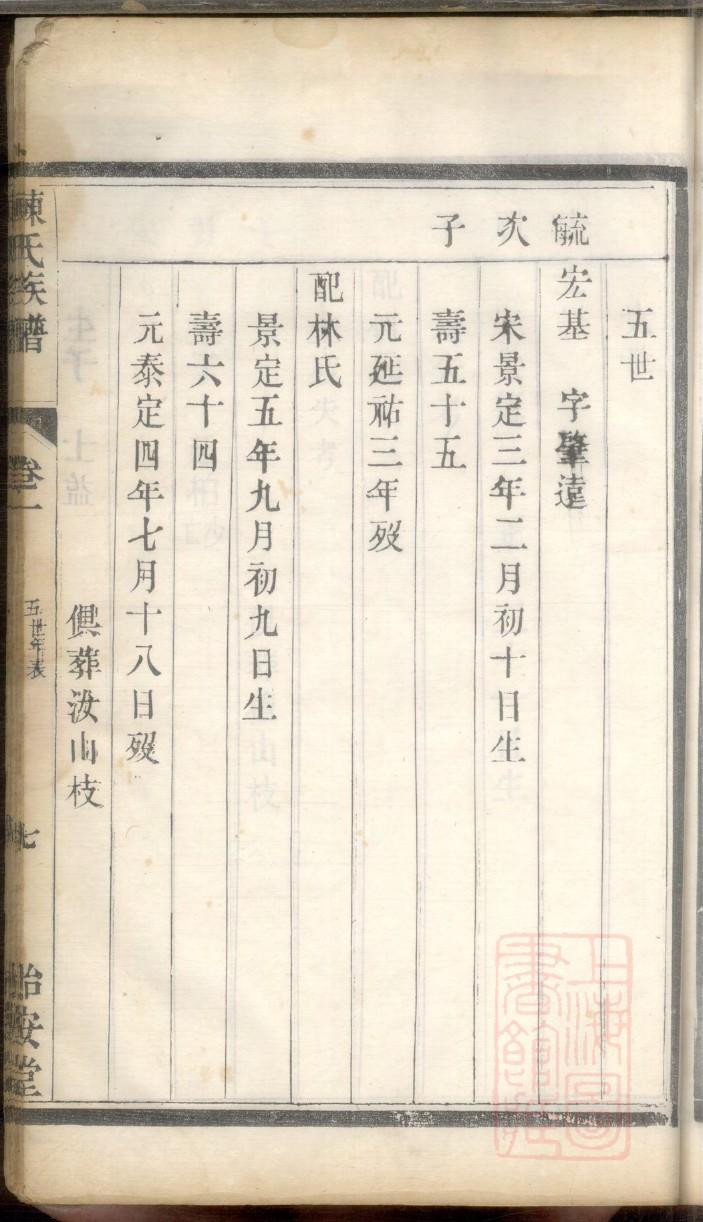 五世
毓 宏基 字肇遠
次 宋景定三年二月初十日生
子 壽五十五
元延祐三年歿
配林氏
景定五年九月初九日生
壽六十四
元泰定四年七月十八日歿
俱葬汝山枝
陳氏族譜 卷一 五世年表 七 怡安堂
上海圖書館藏